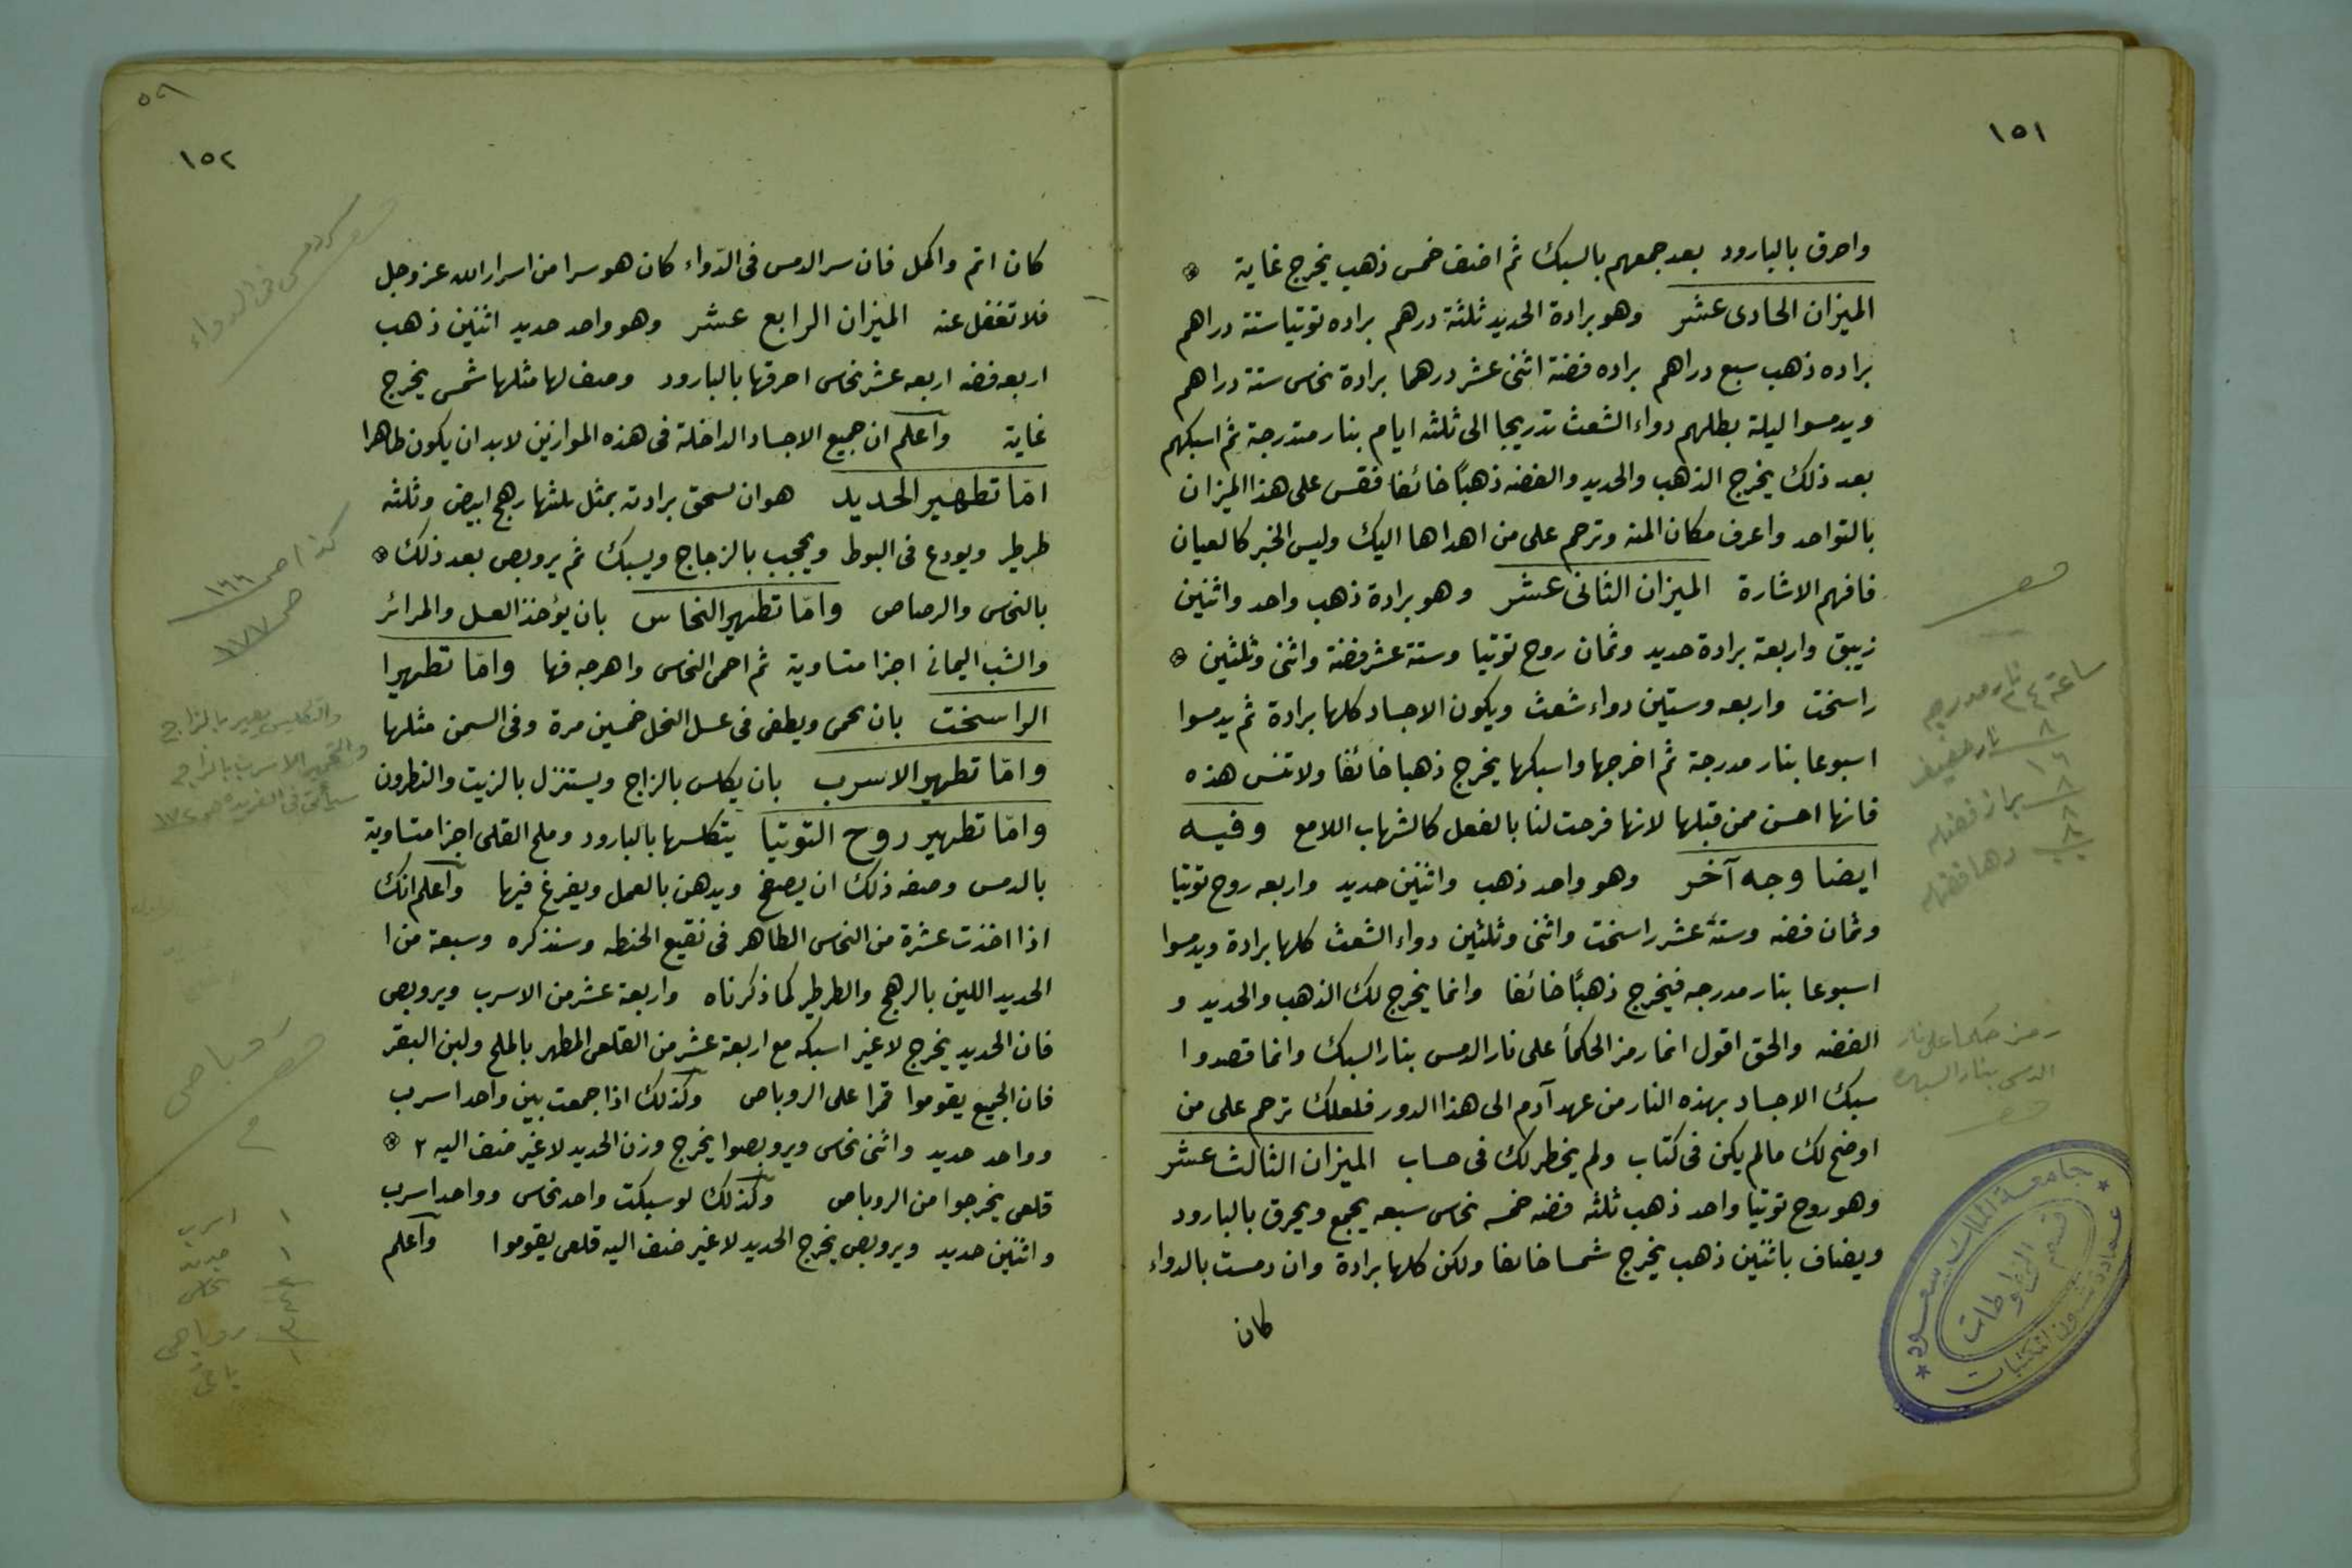 ١٥١
واحرق بالبارود بعد جمعهم بالسبك ثم اضف خمس ذهب يخرج غاية
الميزان الحادى عشر وهو برادة الحديد ثلثة درهم براده توتيا ستة دراهم
براده ذهب سبع دراهم براده فضة اثنى عشر درهما برادة نحاس ستة دراهم
ويدمسوا ليلة بطلهم دواء الشعث تدريجا الى ثلثه ايام بنار متدرجة ثم اسبكهم
بعد ذلك يخرج الذهب والحديد والفضه ذهبًا خائفا فقس على هذا الميزان
بالتواحد واعرف مكان المنه وترحم على من اهداها اليك وليس الخبر كالعيان
فافهم الاشارة الميزان الثانى عشر وهو برادة ذهب واحد واثنين
زيبق واربعة برادة حديد وثمان روح توتيا وستة عشر فضة واثنى وثلثين
راسخت واربعه وستين دواء شعث ويكون الاجساد كلها برادة ثم يدمسوا
اسبوعا بنار مدرجة ثم اخرجها واسبكها يخرج ذهبا خائفا ولا تنس هذه
فانها احسن ممن قبلها لانها فرحت لنا بالفعل كالشهاب اللامع وفيه
ايضا وجه آخر وهو واحد ذهب واثنين حديد واربعه روح توتيا
وثمان فضه وستة عشر راسخت واثنى وثلثين دواء الشعث كلها برادة ويدمسوا
اسبوعا بنار مدرجه فيخرج ذهبًا خائفا وانما يخرج لك الذهب والحديد و
الفضه والحق اقول انما رمز الحكمأ على نار الدمس بنار السبك وانما قصدوا
سبك الاجساد بهذه النار من عهد آدم الى هذا الدور فلعلك ترحم على من
اوضح لك مالم يكن فى كتاب ولم يخطر لك فى حساب الميزان الثالث عشر
وهو روح توتيا واحد ذهب ثلثه فضه خمسه نحاس سبعه يجمع ويحرق بالبارود
ويضاف باثنين ذهب يخرج شمسا خائفا ولكن كلها برادة وان دمست بالدواء
كان
ساعة ٢٤ نار مدرجه
٨ نار خفيف
١٦
٨
٨
٨
رمز حكما على نار
الدمس بنار السبك
جامعة الملك سعود
عمادة شؤون المكتبات
قسم المخطوطات
٥٩
١٥٢
كان اتم واكمل فان سر الدمس فى الدواء كان هو سرا من اسرار الله عز وجل
فلا تغفل عنه الميزان الرابع عشر وهو واحد حديد اثنين ذهب
اربعه فضه اربعه عشر نحاس احرقها بالبارود وصف لها مثلها شمس يخرج
غاية واعلم ان جميع الاجساد الداخلة فى هذه الموازين لابد ان يكون طاهرا
امّا تطهير الحديد هو ان تسحق برادته بمثل ثلثها رهج ابيض وثلثه
طرطير ويودع فى البوط ويحجب بالزجاج ويسبك ثم يروبص بعد ذلك
بالنحاس والرصاص وامّا تطهير النحاس بان يؤخذ العسل والمرائر
والشب اليمانى اجزا متساوية ثم احمى النحاس واهرجه فها وامّا تطهيرا
الراسخت بان يحمى ويطفى فى عسل النحل خمسين مرة وفى السمن مثلها
وامّا تطهير الاسرب بان يكلس بالزاج ويستنزل بالزيت والنطرون
وامّا تطهير روح التوتيا يتكلسها بالبارود وملح القلى اجزا متساوية
بالدمس وصفه ذلك ان يصفح ويدهن بالعمل ويفرغ فيها واعلم انك
اذا اخذت عشرة من النحاس الطاهر فى نقيع الحنطه وسنذكره وسبعة من ا
الحديد اللين بالرهج والطرطير كما ذكرناه واربعة عشر من الاسرب ويروبص
فان الحديد يخرج لاغير اسبكه مع اربعة عشر من القلعى المطهر بالملح ولبن البقر
فان الجميع يقوموا قمرا على الروباص وكذلك اذا جمعت بين واحد اسرب
وواحد حديد واثنى نحاس ويروبصوا يخرج وزن الحديد لاغير ضف اليه ٢
قلعى يخرجوا من الروباص وكذلك لو سبكت واحد نحاس وواحد اسرب
واثنين حديد ويروبص يخرج الحديد لاغير ضف اليه قلعى يقوموا واعلم
كذا ص ١٦٦
ص ١٧٧
والتكليس بعير بالزاج
سيأتى فى الفريده ص ١٧٢
روباص
١ اسرب
١ حديد
نحاس
روباص
باقى